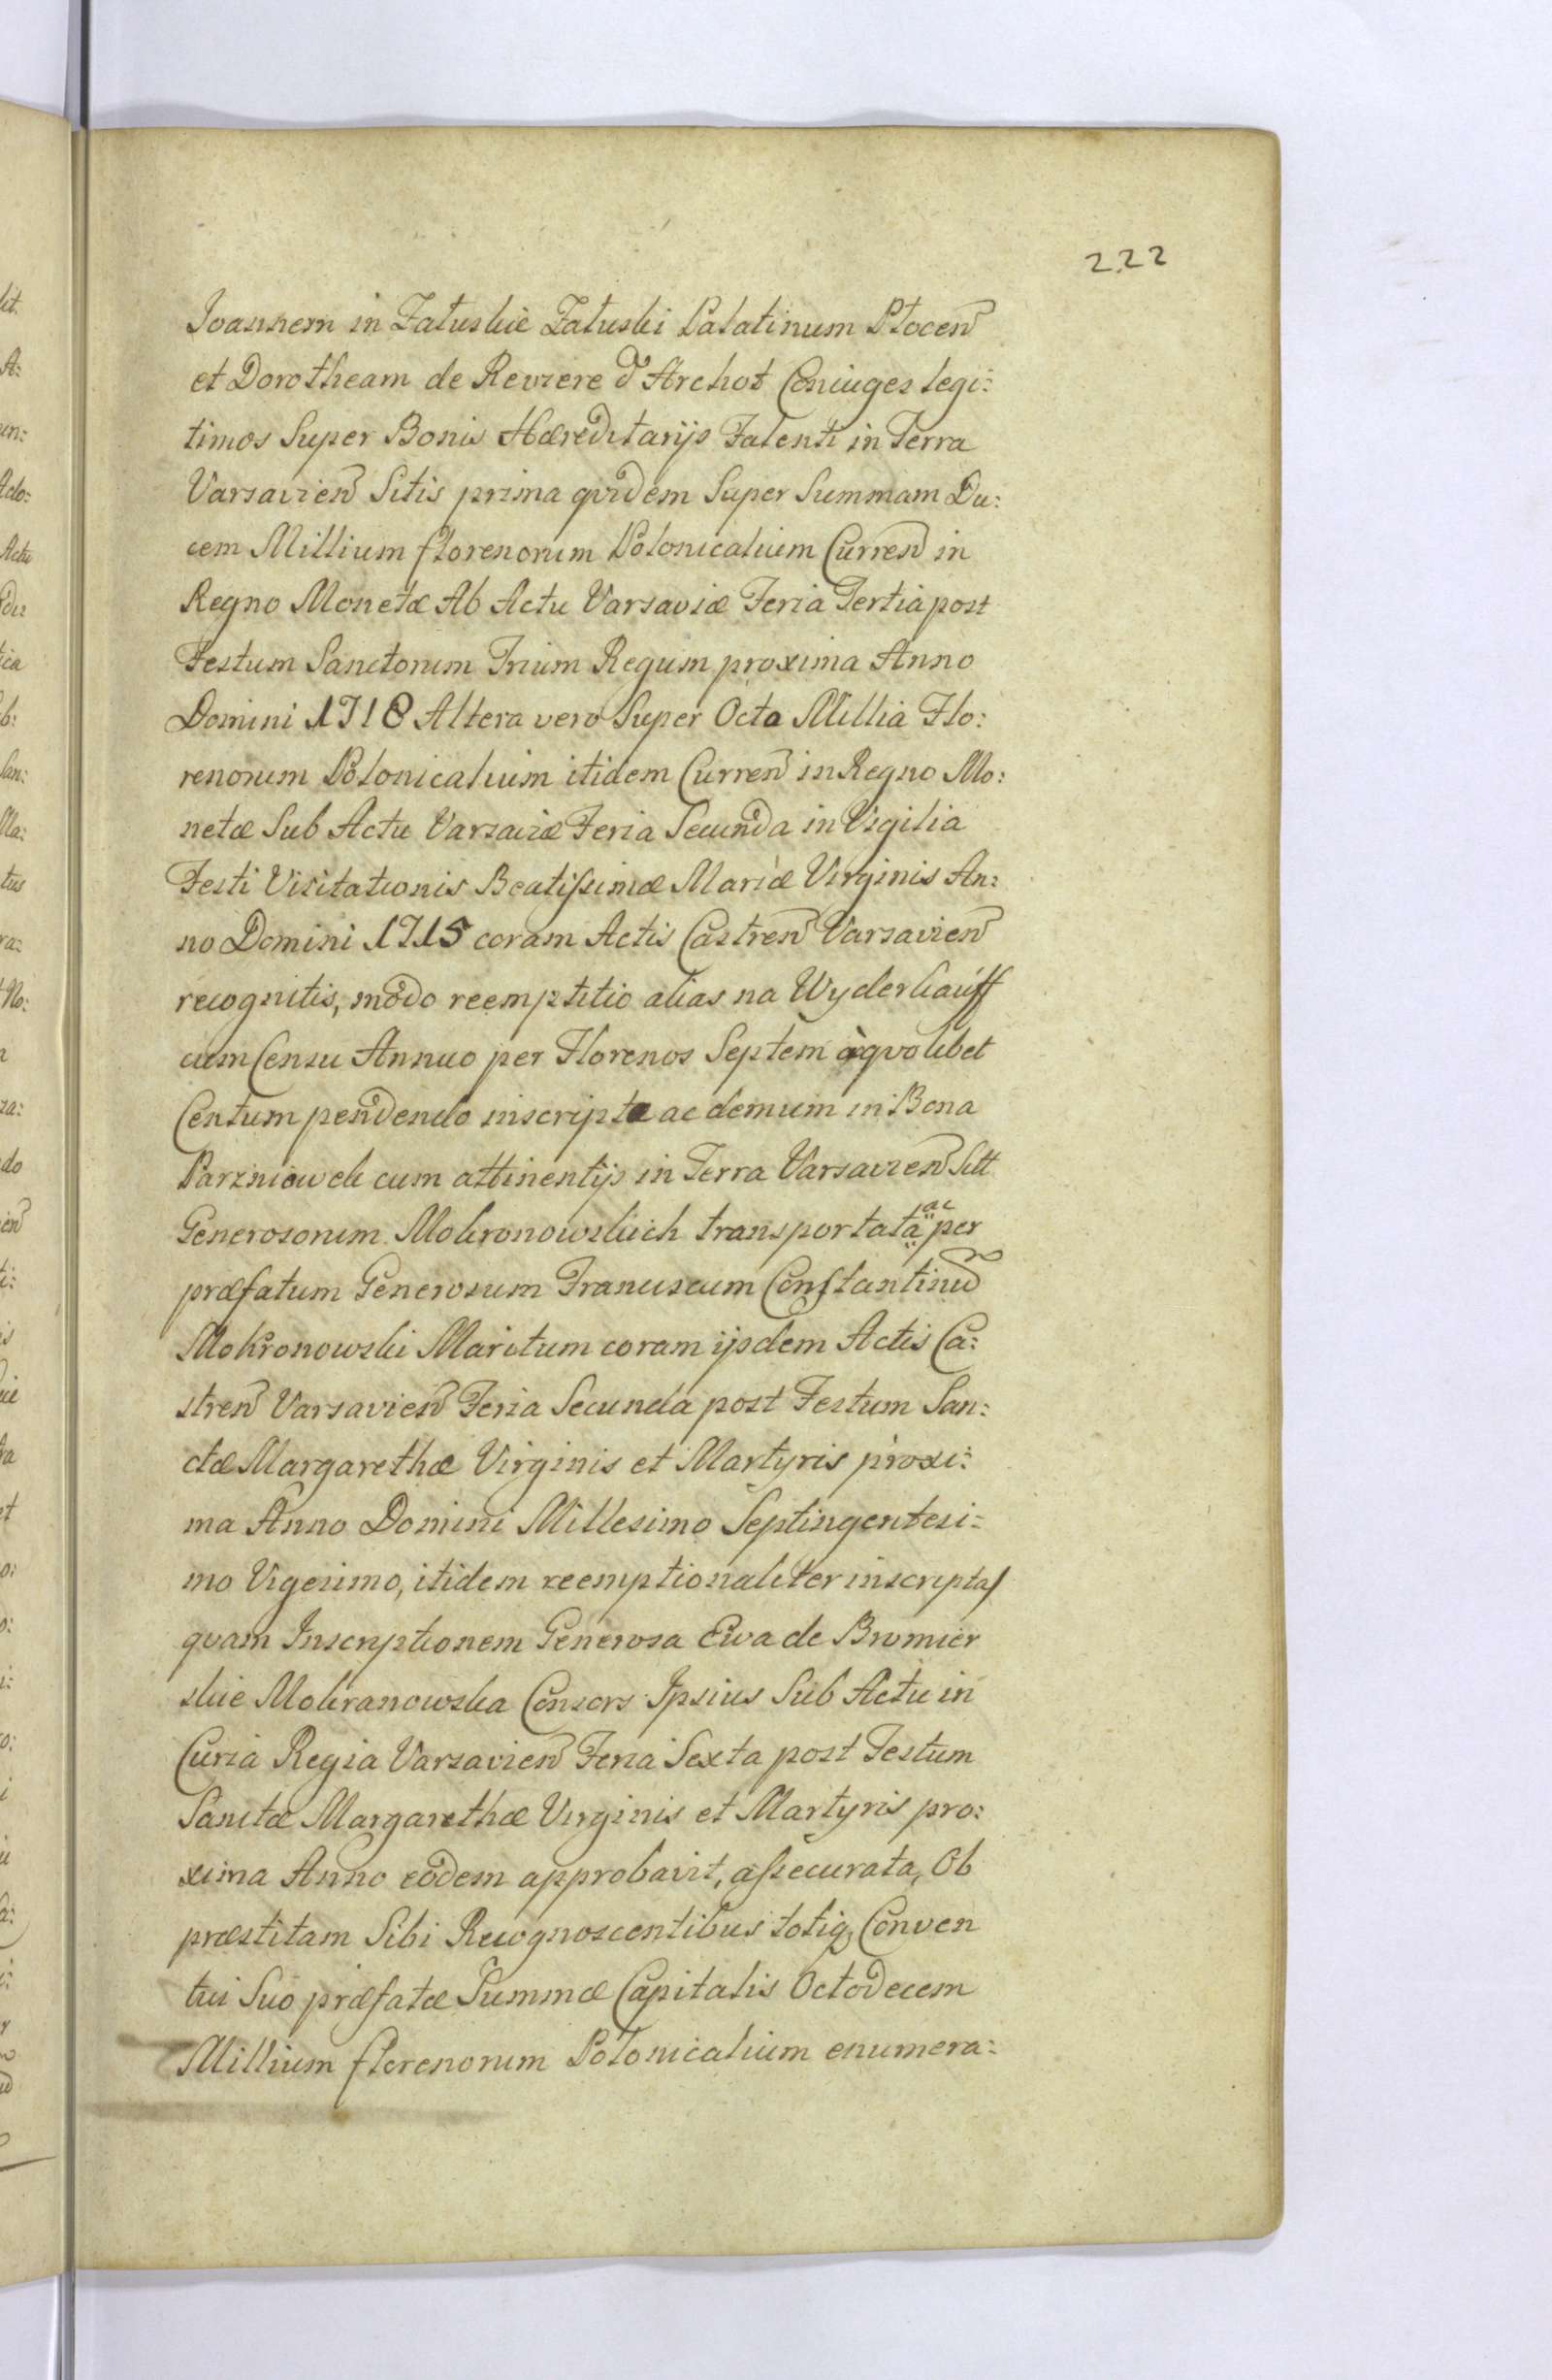 222
Joannem in Załuskie Załuski Palatinum Płocen̄
et Dorotheam de Reviere d'Archot Coniuges legi:
timos Super Bonis Hæreditarijs Falenti in Terra
Varsavien̄ Sitis prima qvidem Super Summam De:
cem Millium florenorum Polonicalium Curren̄ in
Regno Monetæ Ab Actu Varsaviæ Feria Tertia post
Festum Sanctorum Trium Regum proxima Anno
Domini 1718 Altera vero Super Octo Millia Flo:
renorum Polonicalium itidem Curren̄ in Regno Mo:
netæ Sub Actu Varsaviæ Feria Secunda in Vigilia
Festi Visitationis Beatissimæ Mariæ Virginis An:
no Domini 1715 coram Actis Castren̄ Varsavien̄
recognitis, modo reemptitio alias na Wyderkauff
cum Censu Annuo per Florenos Septem à qvolibet
Centum pendendo inscripta ac demum in Bona
Parzniewek cum attinentijs in Terra Varsavien̄ Sitt
Generosorum Mokronowskich transportata ac per
præfatum Generosum Franciscum Constantinū
Mokronowski Maritum coram ijsdem Actis Ca:
stren̄ Varsavien̄ Feria Secunda post Festum San:
ctæ Margarethæ Virginis et Martyris proxi:
ma Anno Domini Millesimo Septingentesi:
mo Vigesimo, itidem reemptionaliter inscripta/
qvam Inscriptionem Generosa Ewa de Bromier
skie Mokranowska Consors Ipsius Sub Actu in
Curia Regia Varsavien̄ Feria Sexta post Festum
Sanctæ Margarethæ Virginis et Martyris pro:
xima Anno eodem approbavit, assecurata, Ob
præstitam Sibi Recognoscentibus totiq, Conven
tui Suo præfatæ Summæ Capitalis Octodecem
Millium florenorum Polonicalium enumera: